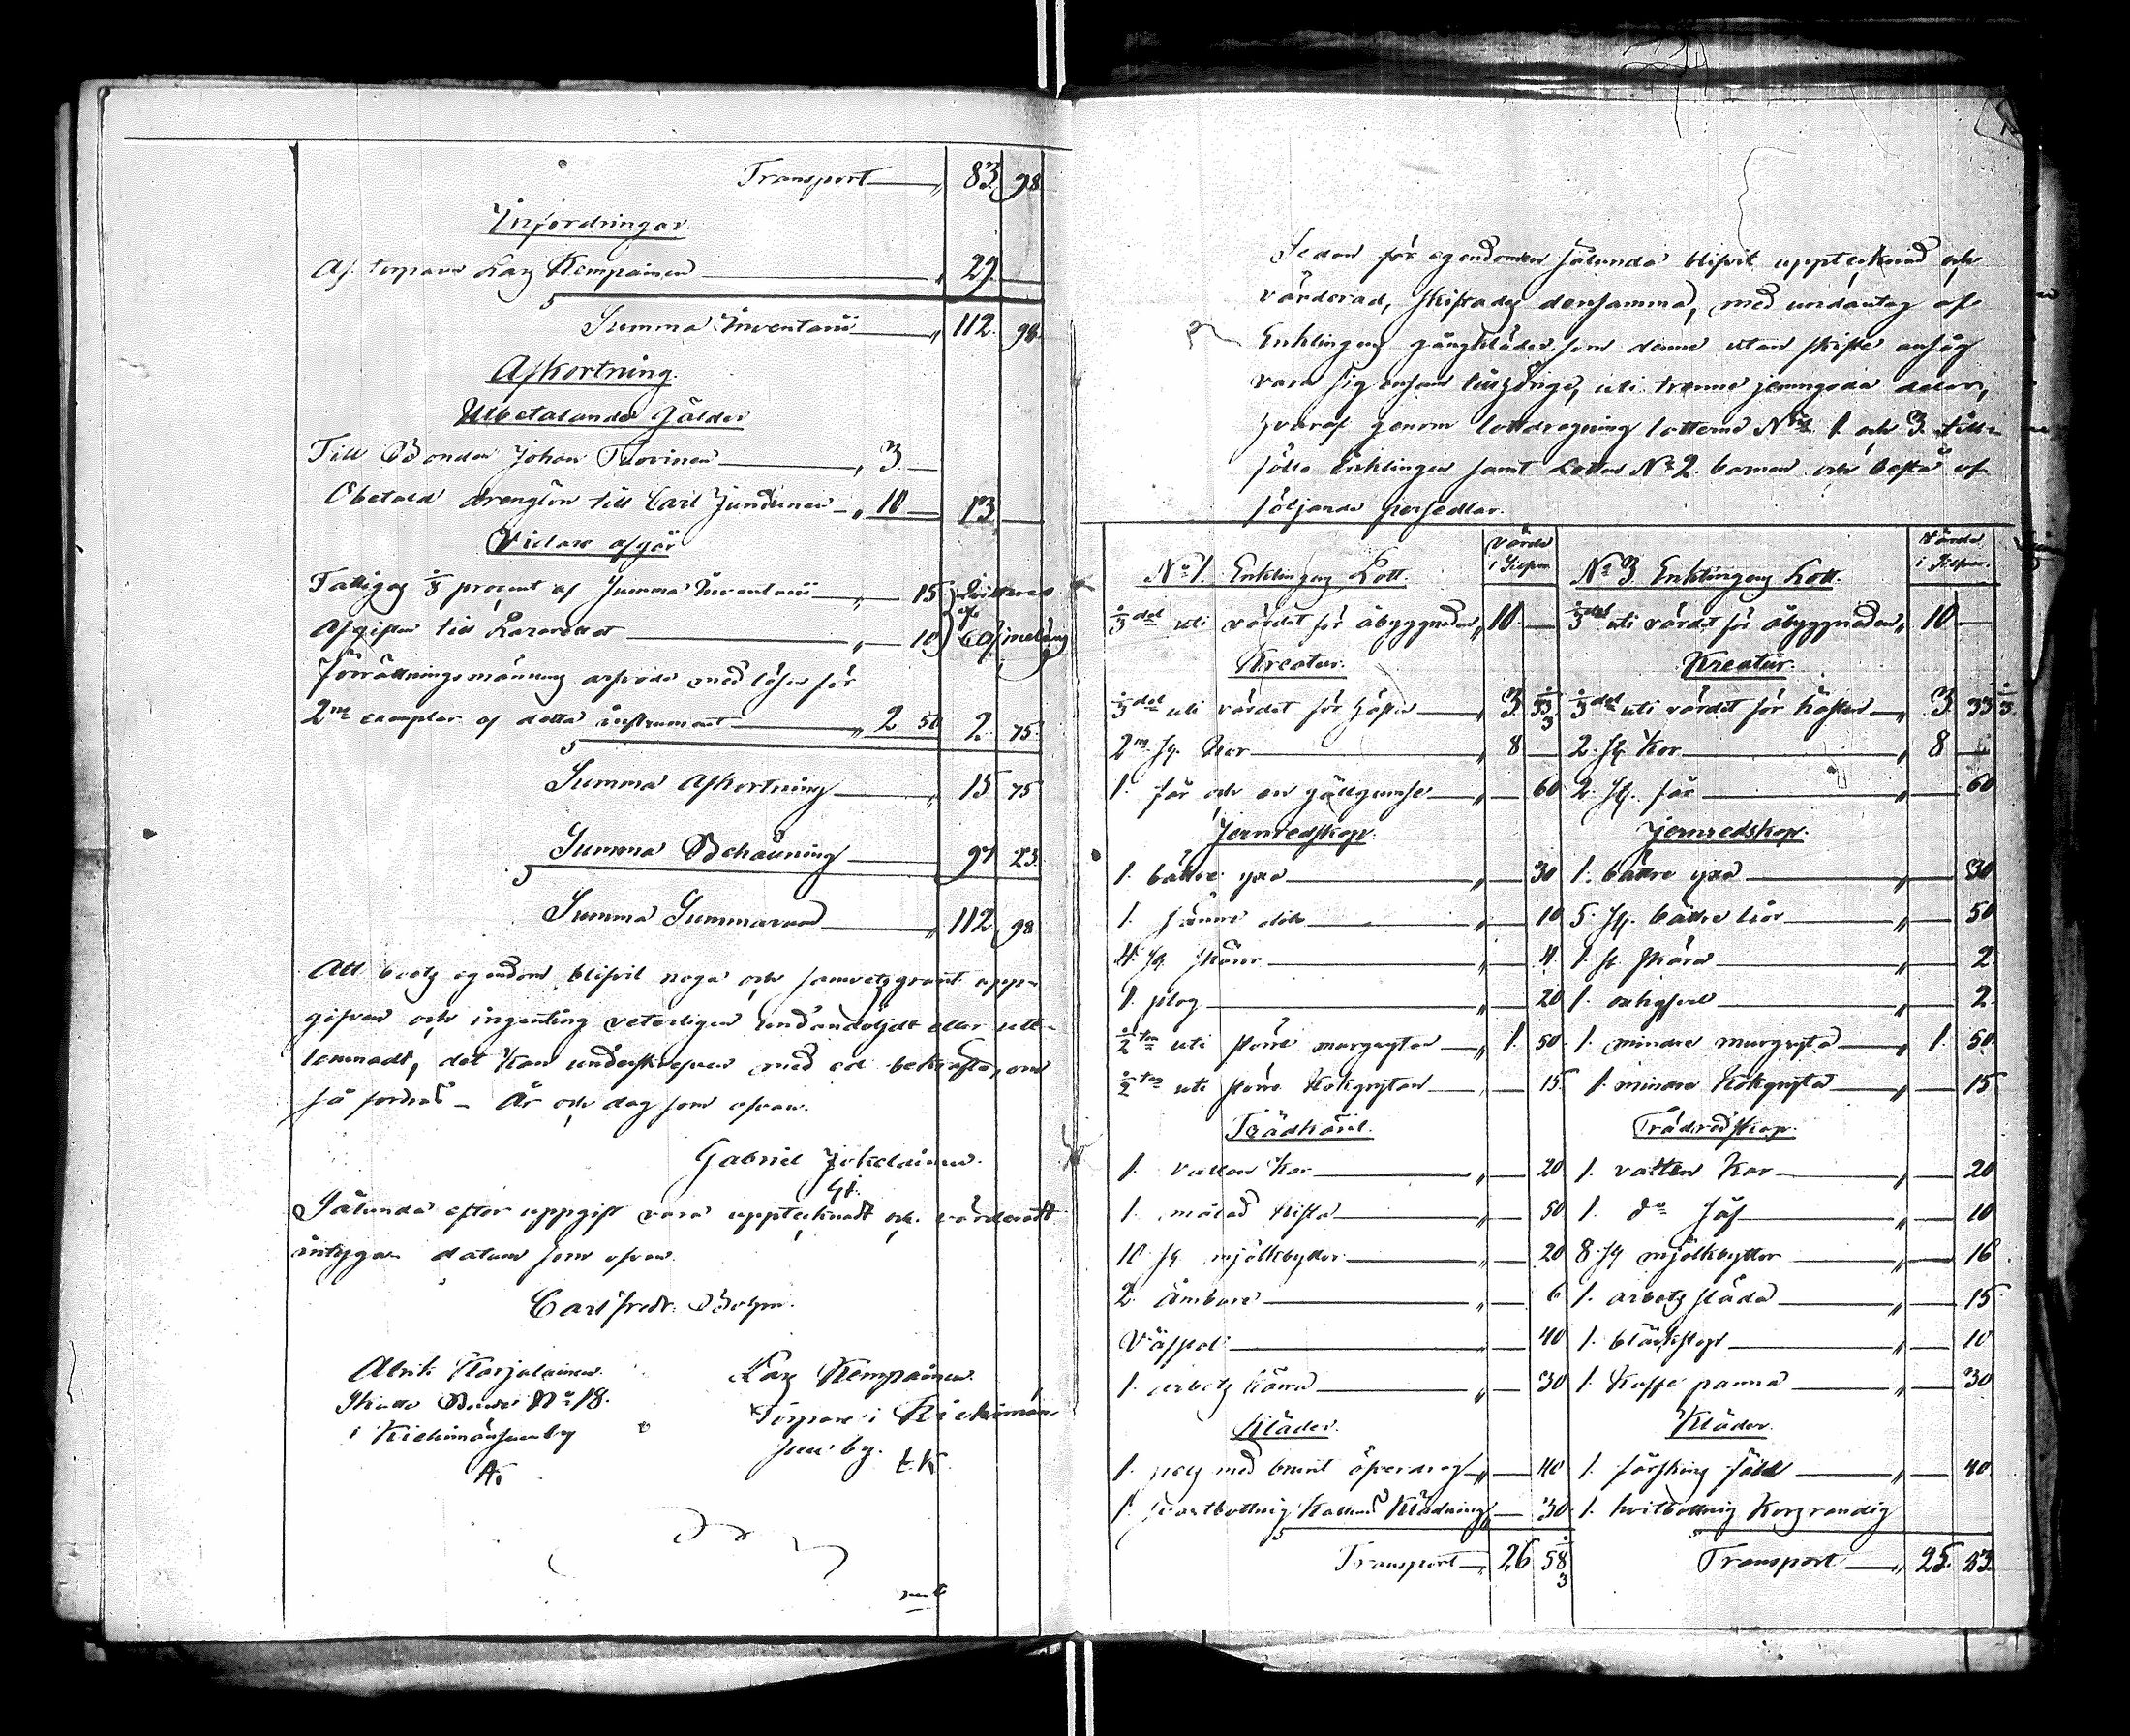 Transport — " 83. 98.
Infordringar.
Af torparen Lars Kempainen — " 29. —
Summa Inventarii — " 112. 98.
Afkortning.
Utbetalande Gälder
Till Bonden Johan Tuovinen — " 3. —
Obetald drenglön till Carl — " 10 — 13 —
Vidare afgår
Fattigas 1/8 procent af Summa Inventarii — " — 15
Afgiften till Lazarettet — " — 10
Förrättningsmännens arfvode med lösen för
2ne exemplar af detta instrument — " 2 50 2. 75.
Summa Afkortning — " 15 75
Summa Behållning — 97 23.
Summa Summarum — " 112 98
Att boets egendom blifvit noga och samvetsgrant upp-
gifven och ingenting veterligen undandöljdt eller ute-
lemnadt, det kan underskrefven med ed bekräfta, om
så fordras — År och dag som ofvan.
Gabriel Jokelainen.
G.J.
Sålunda efter uppgift vara upptecknadt och värderadt
intyga datum som ofvan.
Carl Fredr.
Alrik Karjalainen. Lars Kempainen.
Skatte Bonde No 18. Torpare i Kiehimän-
i Kiehimänsuu by suu by.
A. L.K.
Sedanför egendomen sålunda blifvit upptecknad och
värderad, skiftades densamma, med undantag af
Enklingens gångkläder som denne utan skifte ansåg
vara sig ensam tillhörige, uti trenne jemngoda delar,
hvaraf genom lottdragning lotterne No 1 och 3 till-
föllo Enklingen samt Lotten No 2. barnen och bestå af
följande persedlar.
No 1. Enklingens Lott. Värde i Silfver No 3 Enklingens Lott. Värde i Silfver.
1/3 del uti värdet för åbyggnaden " 10. — 1/3 del uti värdet för åbyggnaden " 10 —
Kreatur. Kreatur.
1/3 del uti värdet för hästen — " 3 33 1/3 1/3 del uti värdet för hästen — " 3 33 1/3
2ne st. Kor — " 8 — 2. st. Kor — " 8 —
1. får och en gällgumse — " — 60 2. st. får — " — 60
Jernredskap. Jernredskap.
1. bättre yxa — " — 30 1. bättre yxa — " — 30
1. sämre dito — " — 10 5. st. bättre liar — " — 50
4. st. skäror — " — 4. 1. st. skära — " — 2.
1. plog — " — 20 1. — " — 2.
1/2 ten uti större murgrytan — " 1. 50. 1. mindre murgryta — " 1. 50.
1/2 ten uti större kokgrytan — " — 15. 1. mindre kokgryta — " — 15
Trädkäril. Trädredskap.
1. vatten Kar — " — 20 1. vatten Kar — " — 20
1. målad kista — " — 50 1. do så — " — 10
10 st mjölkbyttor — " — 20 8. st mjölkbyttor — " — 16
2. Ämbare — " — 6 1. arbets släda — " — 15
Väfstol — " — 40 1. — " — 10
1. arbets kärra — " — 30 1. Kaffe panna — " — 30
Kläder. Kläder.
1. pels med brunt öfverdrag — " — 40 1. fårskins fäll — " — 40.
1. svartbottnig Kattuns Klädning " — 30. 1. hvitbottnig Korsrandig
Transport — " 26 58 1/3 Transport — " 25. 83.